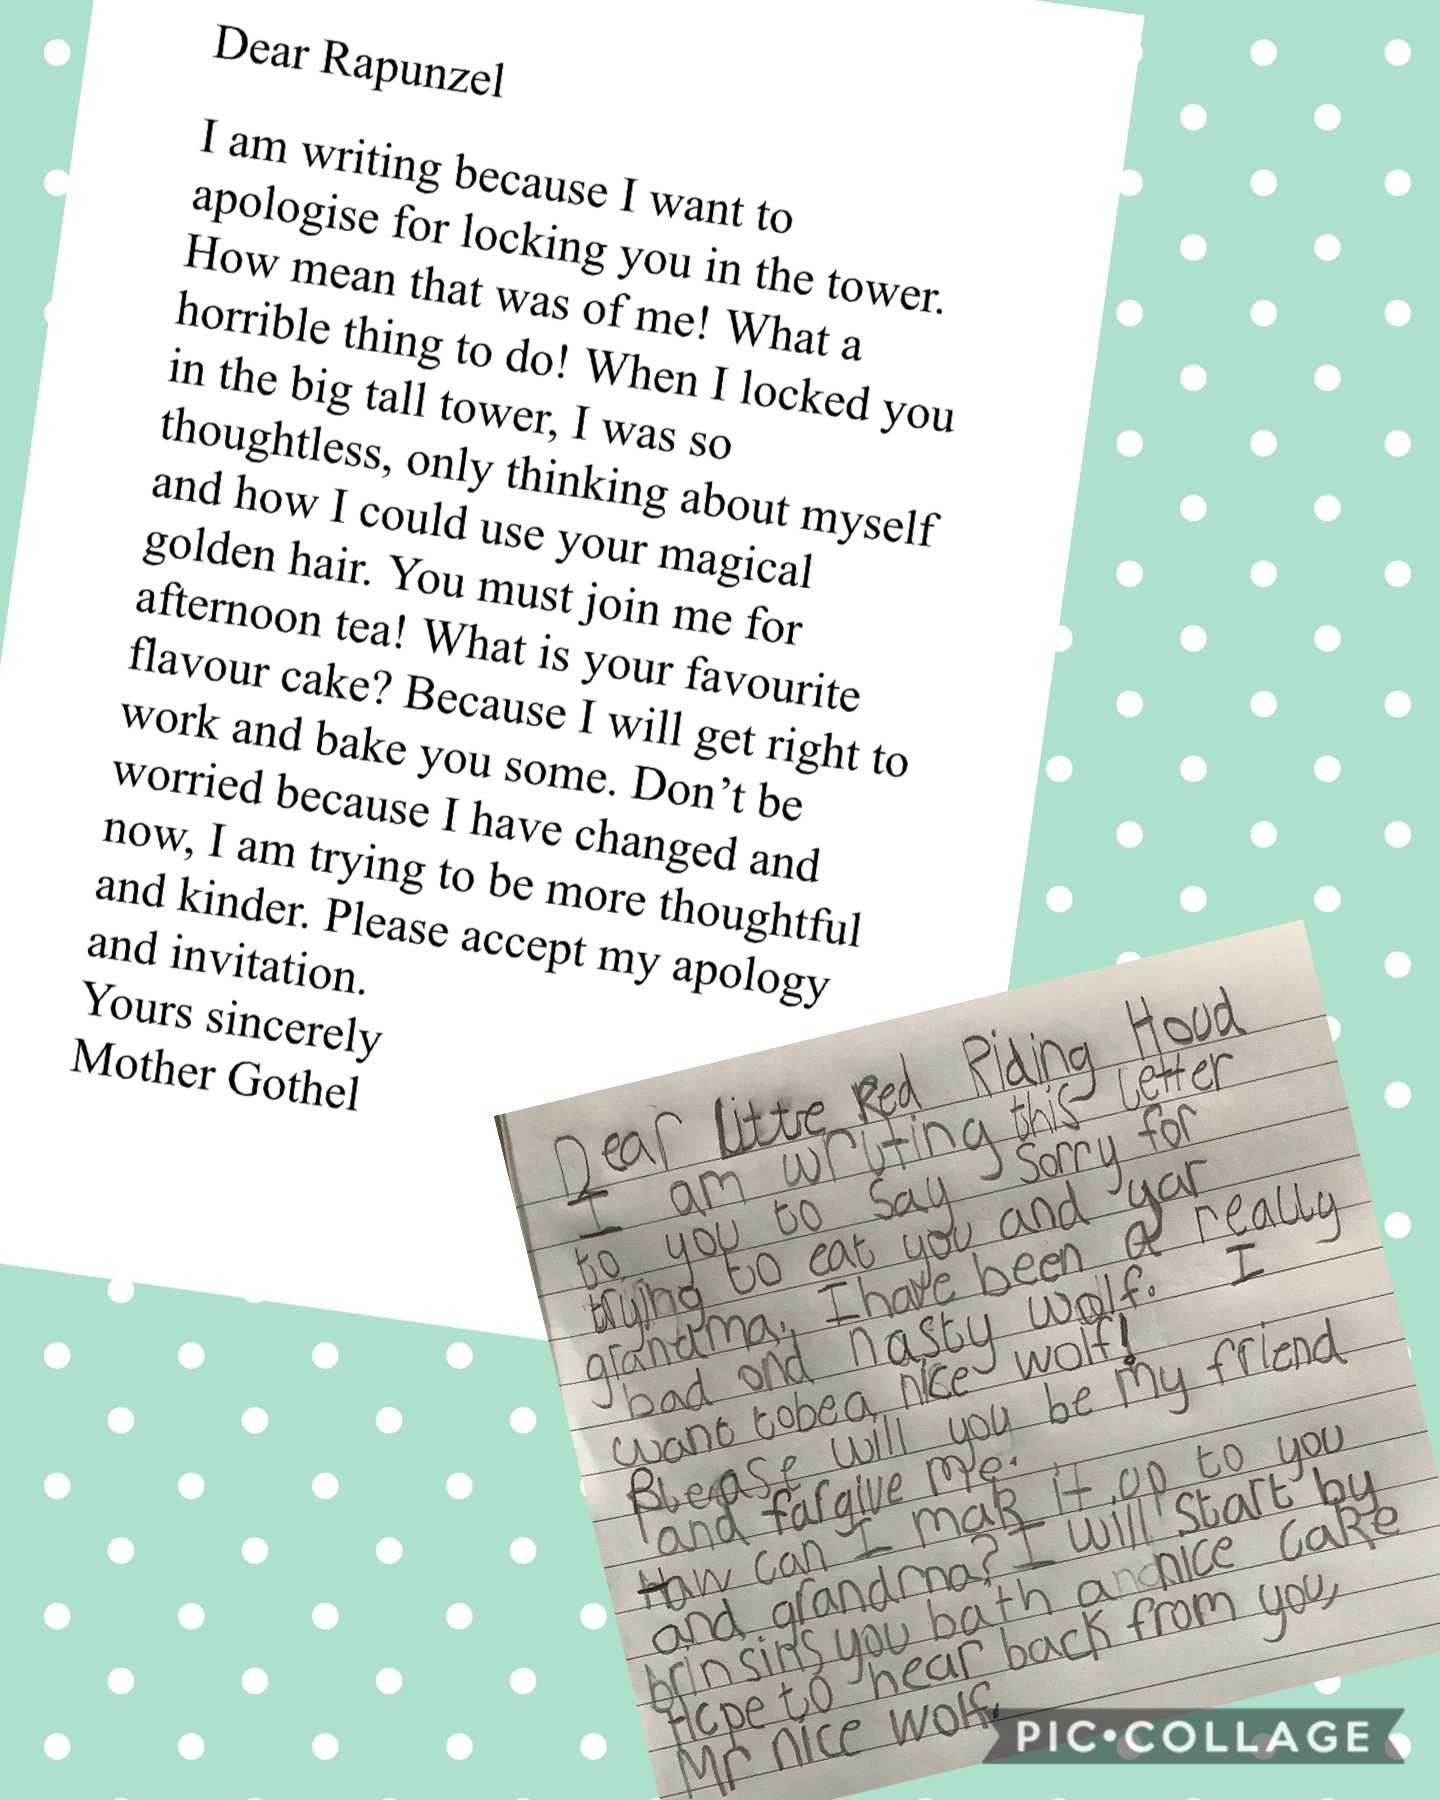 Dear Rapunzel
I am writing because I want to
apologise for locking you in the tower.
How mean that was of me! What a
horrible thing to do! When I locked you
in the big tall tower, I was so
thoughtless, only thinking about myself
and how I could use your magical
golden hair. You must join me for
afternoon tea! What is your favourite
flavour cake? Because I will get right to
work and bake you some. Don’t be
worried because I have changed and
now, I am trying to be more thoughtful
and kinder. Please accept my apology
and invitation.
Yours sincerely
Mother Gothel
Dear Little Red Riding Houd
I am writing this letter
to you to say sorry for
trying to eat you and yar
grandma, I have been a really
bad and nasty wolf. I
want tobe a nice wolf!
Please will you be my friend
and fargive me.
Haw can I mak it up to you
and grandma? I will start by
you bath a nice cake
Hope to hear back from you,
Mr nice wolf.
PIC•COLLAGE